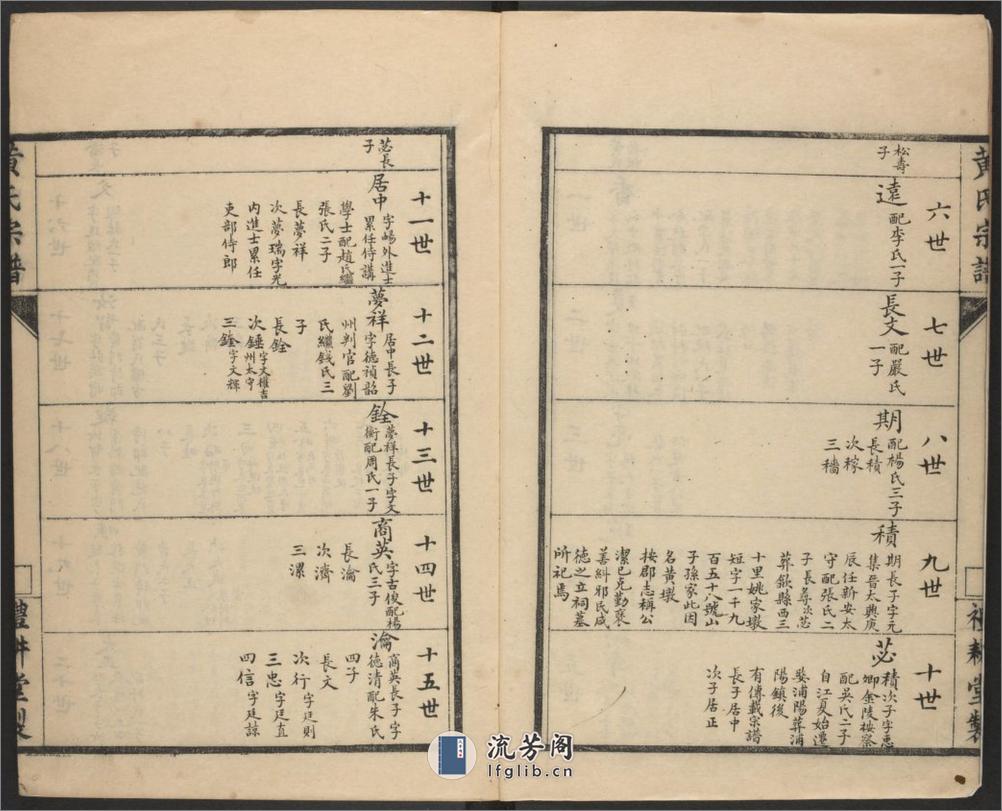 黃氏宗譜
松壽
子
六世
遠配李氏一子
七世
長文配嚴氏
一子
八世
期配楊氏三子
長積
次稼
三穡
九世
積期長子字元
集晉太興庚
辰任新安太
守配張氏二
子長尋次苾
葬歙縣西三
十里姚家墩
短字一千九
百五十八號山
子孫家此因
名黃墩
按郡志稱公
潔已克勤襃
善糾邪民咸
德之立祠墓
所祀焉
十世
苾積次子字惠
卿金陵按察
配吳氏二子
自江夏始遷
婺浦陽葬浦
陽鎮後
有傳載宗譜
長子居中
次子居正
禮耕堂製
苾長
子
十一世
居中字嵎外進士
累任侍講
學士配趙氏繼
張氏二子
長夢祥
次夢瑞字光
內進士累任
吏部侍郎
十二世
夢祥居中長子
字德禎韶
州判官配劉
氏繼錢氏三
子
長銓
次錘字文權吉
州太守
三鍂字文輝
十三世
銓夢祥長子字文
衡配周氏一子
十四世
商英字古俊配楊
氏三子
長瀹
次濟
三漯
十五世
瀹商英長子字
德清配朱氏
四子
長文
次行字廷則
三忠字廷直
四信字廷諒
黃氏宗譜
禮耕堂製
流芳阁
lfglib.cn